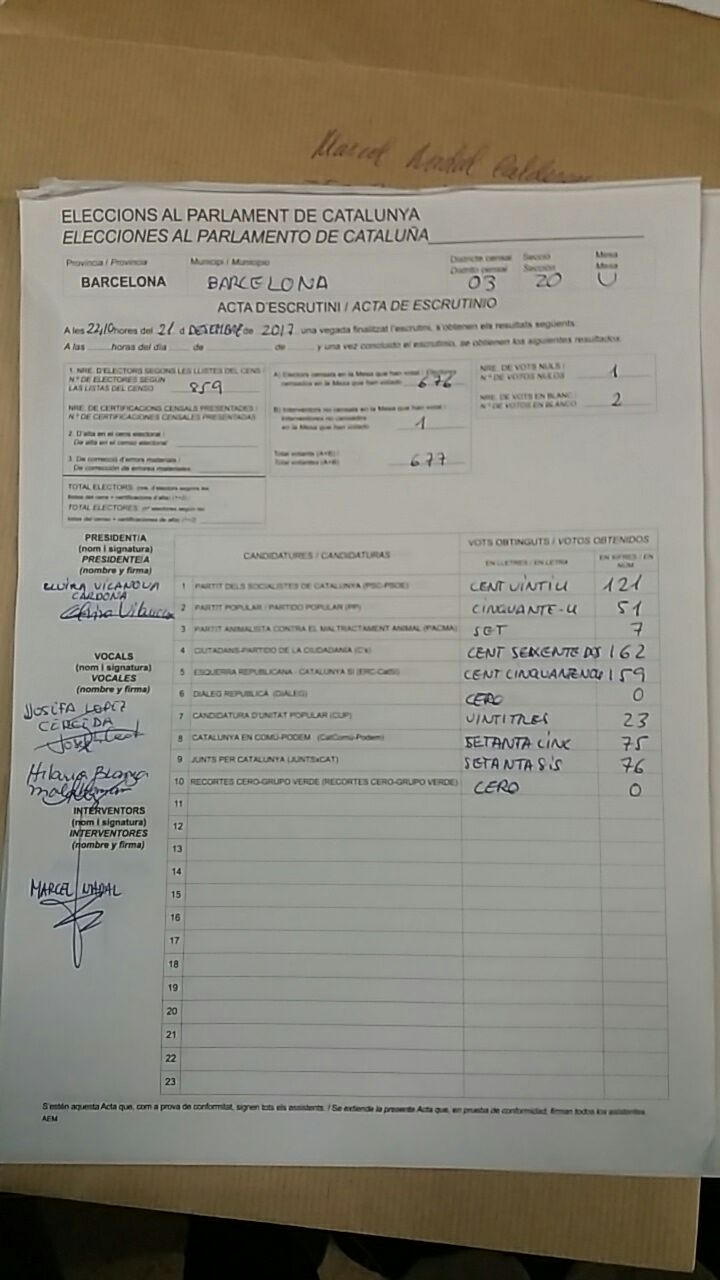 Marcel Nadal Calderon
ELECCIONS AL PARLAMENT DE CATALUNYA
ELECCIONES AL PARLAMENTO DE CATALUÑA
Provincia / Provincia Municipi / Municipio Districte censal Secció Mesa
Distrito censal Sección Mesa
BARCELONA BARCELONA 03 20 U
ACTA D'ESCRUTINI / ACTA DE ESCRUTINIO
A les 22,10 hores del 21 d DESEMBRE de 2017 una vegada finalitzat l'escrutini, s'obtenen els resultats següents:
A las horas del día de de y una vez concluido el escrutinio, se obtienen los siguientes resultados:
1. NRE. D'ELECTORS SEGONS LES LLISTES DEL CENS /
N.º DE ELECTORES SEGÚN
LAS LISTAS DEL CENSO 859
NRE. DE CERTIFICACIONS CENSALS PRESENTADES /
N.º DE CERTIFICACIONES CENSALES PRESENTADAS
2. D'alta en el cens electoral /
De alta en el censo electoral
3. De correcció d'errors materials /
De corrección de errores materiales
TOTAL ELECTORS
TOTAL ELECTORES
A) Electors censats en la Mesa que han votat / Electores
censados en la Mesa que han votado 676
B) Interventors no censats en la Mesa que han votat /
Interventores no censados
en la Mesa que han votado 1
Total votants (A+B) /
Total votantes (A+B) 677
NRE. DE VOTS NULS /
N.º DE VOTOS NULOS 1
NRE. DE VOTS EN BLANC /
N.º DE VOTOS EN BLANCO 2
PRESIDENT/A
(nom i signatura)
PRESIDENTE/A
(nombre y firma)
ELVIRA VILANOVA
CARDONA
Elvira Vilanova
VOCALS
(nom i signatura)
VOCALES
(nombre y firma)
JOSEFA LOPEZ
CEREIDA
Hilaria Blanca
INTERVENTORS
(nom i signatura)
INTERVENTORES
(nombre y firma)
MARCEL NADAL
CANDIDATURES / CANDIDATURAS VOTS OBTINGUTS / VOTOS OBTENIDOS
EN LLETRES / EN LETRA EN XIFRES / EN NÚM
1 PARTIT DELS SOCIALISTES DE CATALUNYA (PSC-PSOE) CENT VINTIU 121
2 PARTIT POPULAR / PARTIDO POPULAR (PP) CINQUANTE-U 51
3 PARTIT ANIMALISTA CONTRA EL MALTRACTAMENT ANIMAL (PACMA) SET 7
4 CIUTADANS-PARTIDO DE LA CIUDADANÍA (C's) CENT SEIXENTE DOS 162
5 ESQUERRA REPUBLICANA - CATALUNYA SÍ (ERC-CatSí) CENT CINQUANENOU 159
6 DIÀLEG REPUBLICÀ (DIÀLEG) CERO 0
7 CANDIDATURA D'UNITAT POPULAR (CUP) VINTITRES 23
8 CATALUNYA EN COMÚ-PODEM (CatComú-Podem) SETANTA CINC 75
9 JUNTS PER CATALUNYA (JUNTSxCAT) SETANTA SIS 76
10 RECORTES CERO-GRUPO VERDE (RECORTES CERO-GRUPO VERDE) CERO 0
11
12
13
14
15
16
17
18
19
20
21
22
23
S'estén aquesta Acta que, com a prova de conformitat, signen tots els assistents. / Se extiende la presente Acta que, en prueba de conformidad, firman todos los asistentes.
AEM